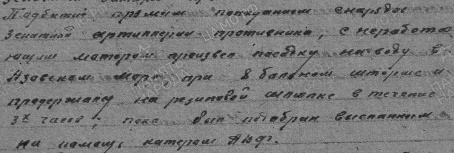 прямым попаданием снаряда
Зенитной артиллерии противника, с неработа-
ющим мотором произвел посадку на воду в
Азовском море при 8 бальном шторме и
продержался на резиновой шлюпке в течение
3х часов, пока был подобран высланным
на помощь катером АВФ.